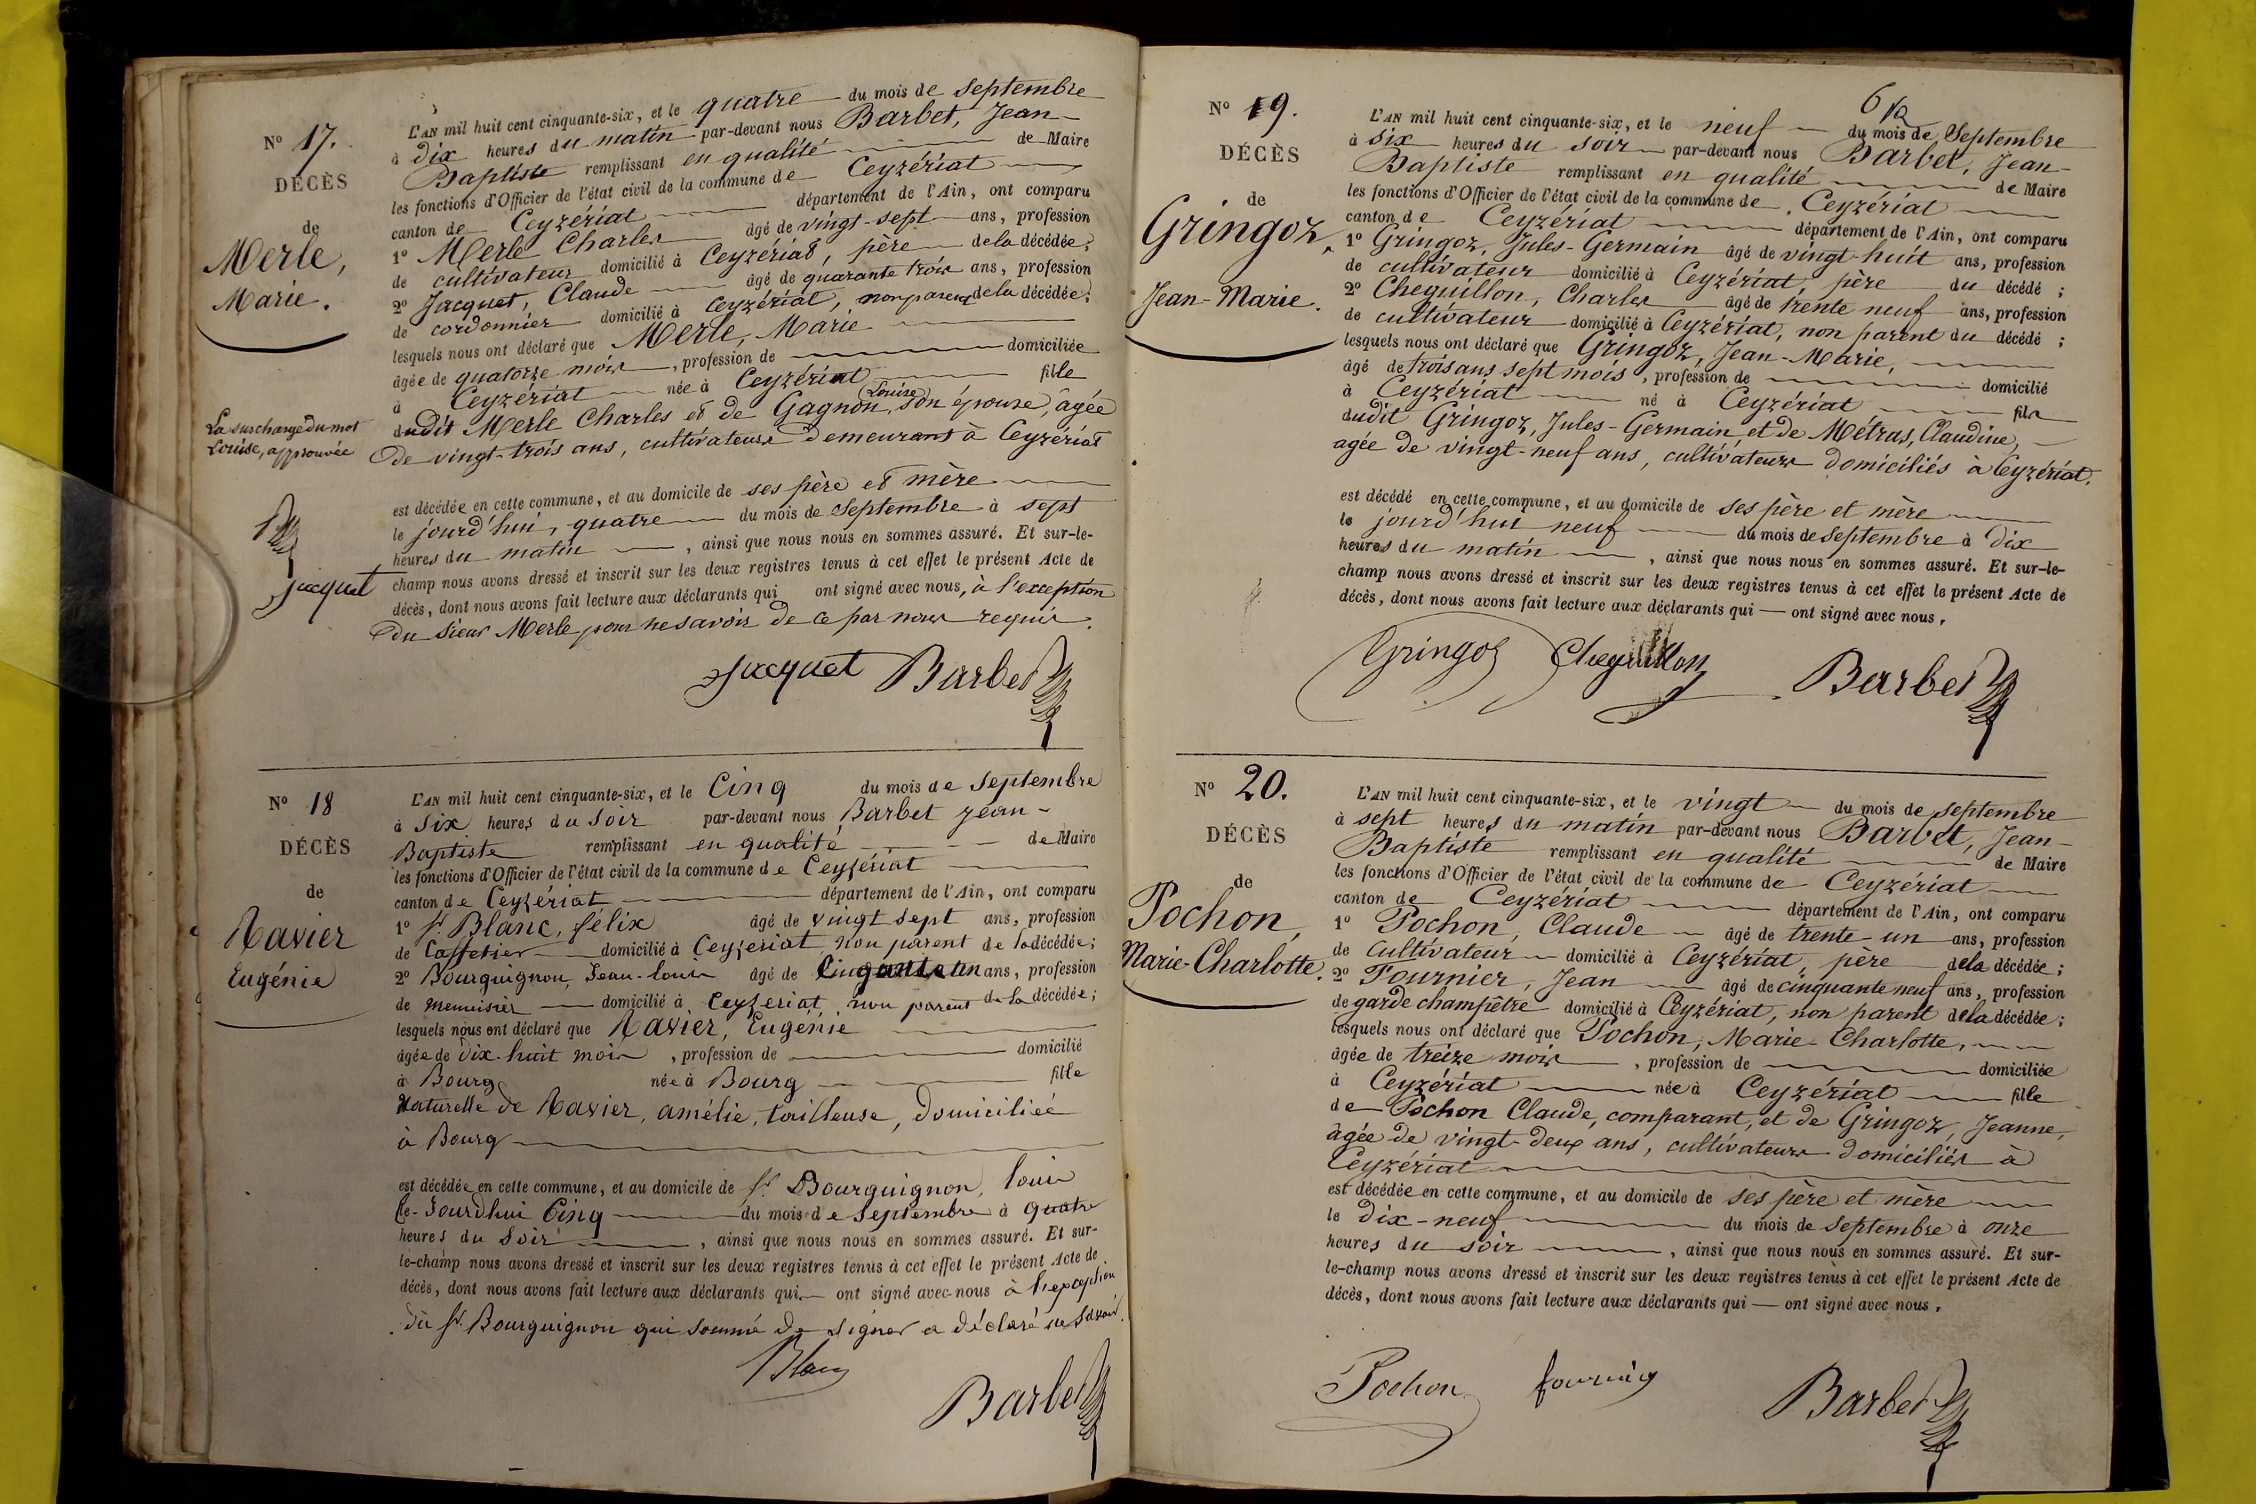 N° 17.
DÉCÈS
de
Merle,
Marie.
La surcharge du mot
Louise, approuvée
Jacquet
L'AN mil huit cent cinquante-six, et le quatre du mois de Septembre
à dix heures du matin par-devant nous Barbet, Jean-
Baptiste remplissant en qualité de Maire
les fonctions d'Officier de l'état civil de la commune de Ceyzériat
canton de Ceyzériat département de l'Ain, ont comparu
1° Merle Charles âgé de vingt-sept ans, profession
de cultivateur domicilié à Ceyzériat, père de la décédée;
2° Jacquet, Claude âgé de quarante trois ans, profession
de cordonnier domicilié à Ceyzériat, non parent de la décédée;
lesquels nous ont déclaré que Merle, Marie
âgée de quatorze mois, profession de domiciliée
à Ceyzériat née à Ceyzériat fille
Louise
dudit Merle Charles et de Gagnon, son épouse, agée
de vingt-trois ans, cultivateurs demeurant à Ceyzériat
est décédée en cette commune, et au domicile de ses père et mère
le jourd'hui, quatre du mois de Septembre à sept
heures du matin, ainsi que nous nous en sommes assuré. Et sur-le-
champ nous avons dressé et inscrit sur les deux registres tenus à cet effet le présent Acte de
décès, dont nous avons fait lecture aux déclarants qui ont signé avec nous, à l'exception
du sieur Merle pour ne savoir de ce par nous requis.
Jacquet Barbet
N° 18
DÉCÈS
de
Ravier
Eugénie
L'AN mil huit cent cinquante-six, et le Cinq du mois de Septembre
à Six heures du Soir par-devant nous Barbet jean-
Baptiste remplissant en qualité de Maire
les fonctions d'Officier de l'état civil de la commune de Ceyzériat
canton de Ceyzériat département de l'Ain, ont comparu
1° Sr. Blanc, félix âgé de vingt sept ans, profession
de Caffetier domicilié à Ceyzeriat non parent de la décédée;
2° Bourguignon, Jean-louis âgé de Cinquante un ans, profession
de menuisier domicilié à Ceyzeriat, non parent de la décédée;
lesquels nous ont déclaré que Ravier, Eugénie
âgée de dix-huit mois, profession de domicilié
à Bourg née à Bourg fille
Naturelle de Ravier, amélie, tailleuse, domiciliée
à Bourg
est décédée en cette commune, et au domicile de Sr. Bourguignon, louis
le Jourdhui Cinq du mois de Septembre à quatre
heures du Soir, ainsi que nous nous en sommes assuré. Et sur-
le-champ nous avons dressé et inscrit sur les deux registres tenus à cet effet le présent Acte de
décès, dont nous avons fait lecture aux déclarants qui — ont signé avec nous à l'exception
du Sr. Bourguignon qui sommé de signer a déclaré ne Savoir.
Blanc
Barbet
N° 19.
DÉCÈS
de
Gringoz,
Jean-Marie.
L'AN mil huit cent cinquante-six, et le neuf du mois de Septembre
à six heures du soir par-devant nous Barbet, Jean-
Baptiste remplissant en qualité de Maire
les fonctions d'Officier de l'état civil de la commune de Ceyzériat
canton de Ceyzériat département de l'Ain, ont comparu
1° Gringoz, Jules-Germain âgé de vingt-huit ans, profession
de cultivateur domicilié à Ceyzériat, père du décédé;
2° Cheguillon, Charles âgé de trente neuf ans, profession
de cultivateur domicilié à Ceyzériat, non parent du décédé;
lesquels nous ont déclaré que Gringoz, Jean-Marie,
âgé de trois ans sept mois, profession de domicilié
à Ceyzériat né à Ceyzériat fils
dudit Gringoz, Jules-Germain et de Métras, Claudine,
agée de vingt-neuf ans, cultivateurs domiciliés à Ceyzériat.
est décédé en cette commune, et au domicile de ses père et mère
le jourd'hui neuf du mois de Septembre à dix
heures du matin, ainsi que nous nous en sommes assuré. Et sur-le-
champ nous avons dressé et inscrit sur les deux registres tenus à cet effet le présent Acte de
décès, dont nous avons fait lecture aux déclarants qui — ont signé avec nous,
Gringoz Cheguillon Barbet
N° 20.
DÉCÈS
de
Pochon,
Marie-Charlotte.
L'AN mil huit cent cinquante-six, et le vingt du mois de Septembre
à sept heures du matin par-devant nous Barbet, Jean-
Baptiste remplissant en qualité de Maire
les fonctions d'Officier de l'état civil de la commune de Ceyzériat
canton de Ceyzériat département de l'Ain, ont comparu
1° Pochon, Claude âgé de trente-un ans, profession
de Cultivateur domicilié à Ceyzériat, père de la décédée;
2° Fournier, Jean âgé de cinquante neuf ans, profession
de garde champêtre domicilié à Ceyzériat, non parent de la décédée;
lesquels nous ont déclaré que Pochon, Marie-Charlotte,
âgée de treize mois, profession de domiciliée
à Ceyzériat née à Ceyzériat fille
de Pochon Claude, comparant, et de Gringoz, Jeanne,
âgée de vingt-deux ans, cultivateurs domiciliés à
Ceyzériat
est décédée en cette commune, et au domicile de ses père et mère
le dix-neuf du mois de Septembre à onze
heures du soir, ainsi que nous nous en sommes assuré. Et sur-
le-champ nous avons dressé et inscrit sur les deux registres tenus à cet effet le présent Acte de
décès, dont nous avons fait lecture aux déclarants qui — ont signé avec nous,
Pochon fournier Barbet